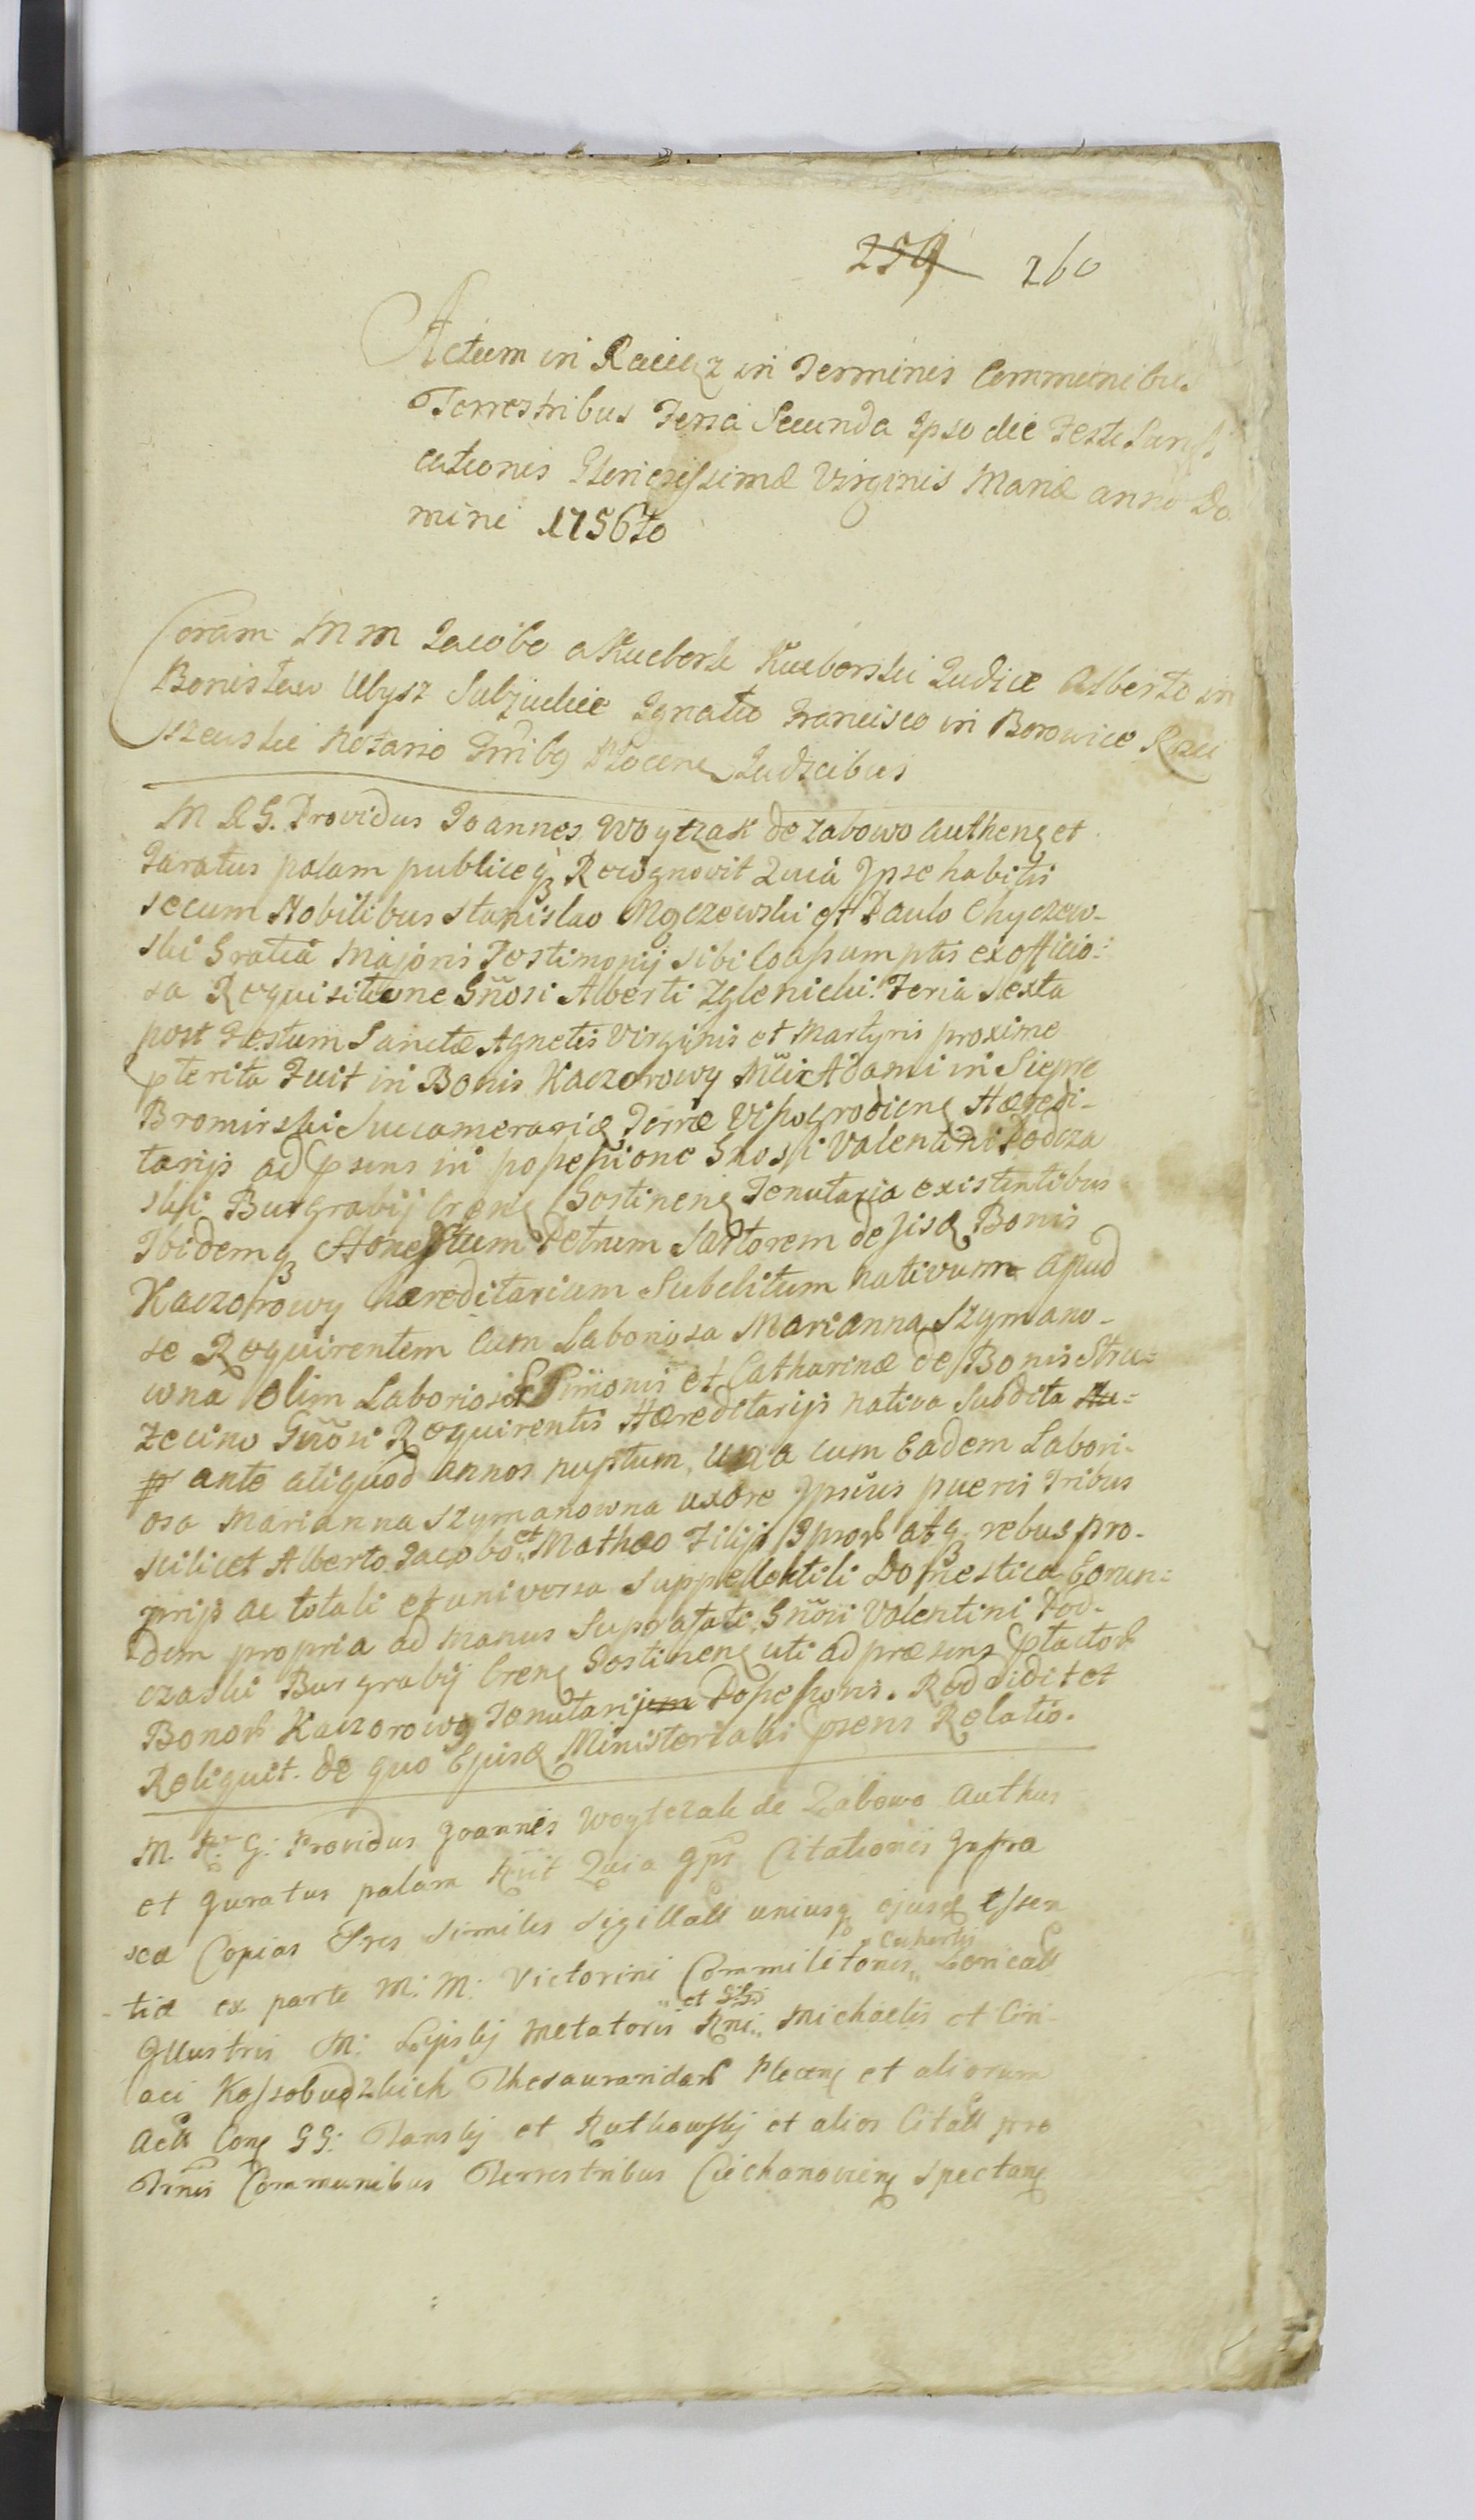 259 260
Actum in Raciąz in Terminis Communibus
Terrestribus Feria Secunda Ipso die Festi Purifi
cationis Gloriosissimæ Virginis Mariæ anno Do
mini 1756to
Coram M M Jacobo a Kuchork Kucborski Judice Alberto in
Bonisław Ubysz Subjudice Ignatio Francisco in Borowice Raci
szewski Notario Gnlibq Plocenę Judicibus
M R G. Providus Joannes Woytzak de Zabowo authenę et
Juratus palam publiceqз Recognovit Quia Ipse habitis
secum Nobilibus Stanislao Mgczewski et Paulo Chyczew-
ski Gratia Majoris Testimonij sibi Coassumptis ex officio:
sa Requisitione Gñosi Alberti Zglenicki. Feria Sexta
post Festum Sanctæ Agnetis Virginis et Martyris proxime
pterita Fuit in Bonis Kaczorowy Mĩci Adami in Siepre
Bromirski Succamerariæ Terræ Vissogrodienę Hæredi-
tarijs ad psens in possessione Gnosi Valentini Podcza
ski Burgrabij Crenę Gostinenę Tenutaria existentibus
Ibidemqз Honestum Petrum Sartorem de Jisd Bonis
Kaczorowy hæreditarium Subditum nativum apud
se Requirentem Cum Laboriosa Marianna Szymano-
wna olim Laboriosor Simonis et Catharinæ de Bonis Stru-
zecino Gñosi Requirentis Hæreditarijs nativa Subdita Nu=
p ante aliquod annos nuptum, Una cum Eadem Labori-
osa Marianna Szymanowna uxore Ipsius pueris Tribus
scilicet Alberto Jacobo et Mathæo Filijs Ipsor atqз rebus pro-
prijs ac totali et universa Suppellectili Domestica Eorun=
dem propria ad manus Suprafati Gñosi Valentini Pod-
czaski Burgrabij Crenę Gostinenę uti ad præsens ptactor
Bonor Kaczorowy Tenutarij Possessoris. Reddidit et
Reliquit. de quo Ejusd Ministerialis psens Relatio.
M. R. G. Providus Joannes Woytczak de Zabowo Authus
et Juratus palam Rñit Quia Ips Citationis Infra
scæ Copias Tres Similes Sigillatt uniusqз ejusd Essen
tiæ ex parte M: M: Victorini Commilitonis Cohortis Loricatt
Illustris M: Lipskj Metatoris Rni et GGi Michaelis et Ciri-
aci Kossobudzkich Thesaurandar Plocenę et aliorum
Actt Conę GG: Tanskj et Rutkowskj et alios Citatt pro
Trnis Communibus Terrestribus Ciechanovienę spectanę